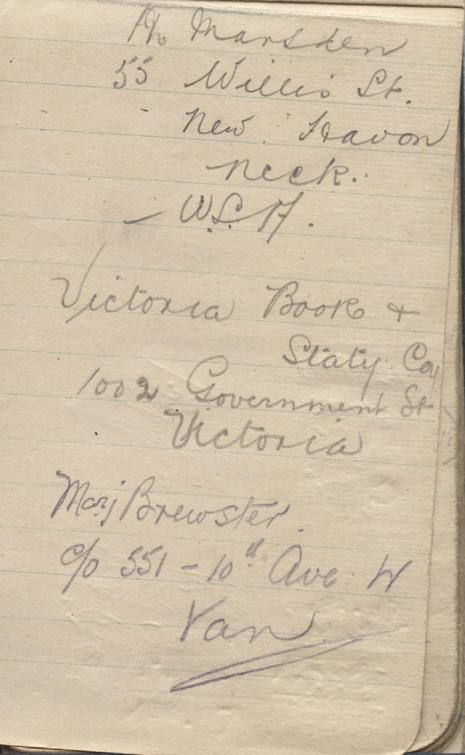 Marsden
55 Willis St.
New Havon
Neck.
Victoria Book &
Staty. Coy
1002 Government St
Victoria
Marj Brewster.
c/o 551 - 10th Ave. W
Van.